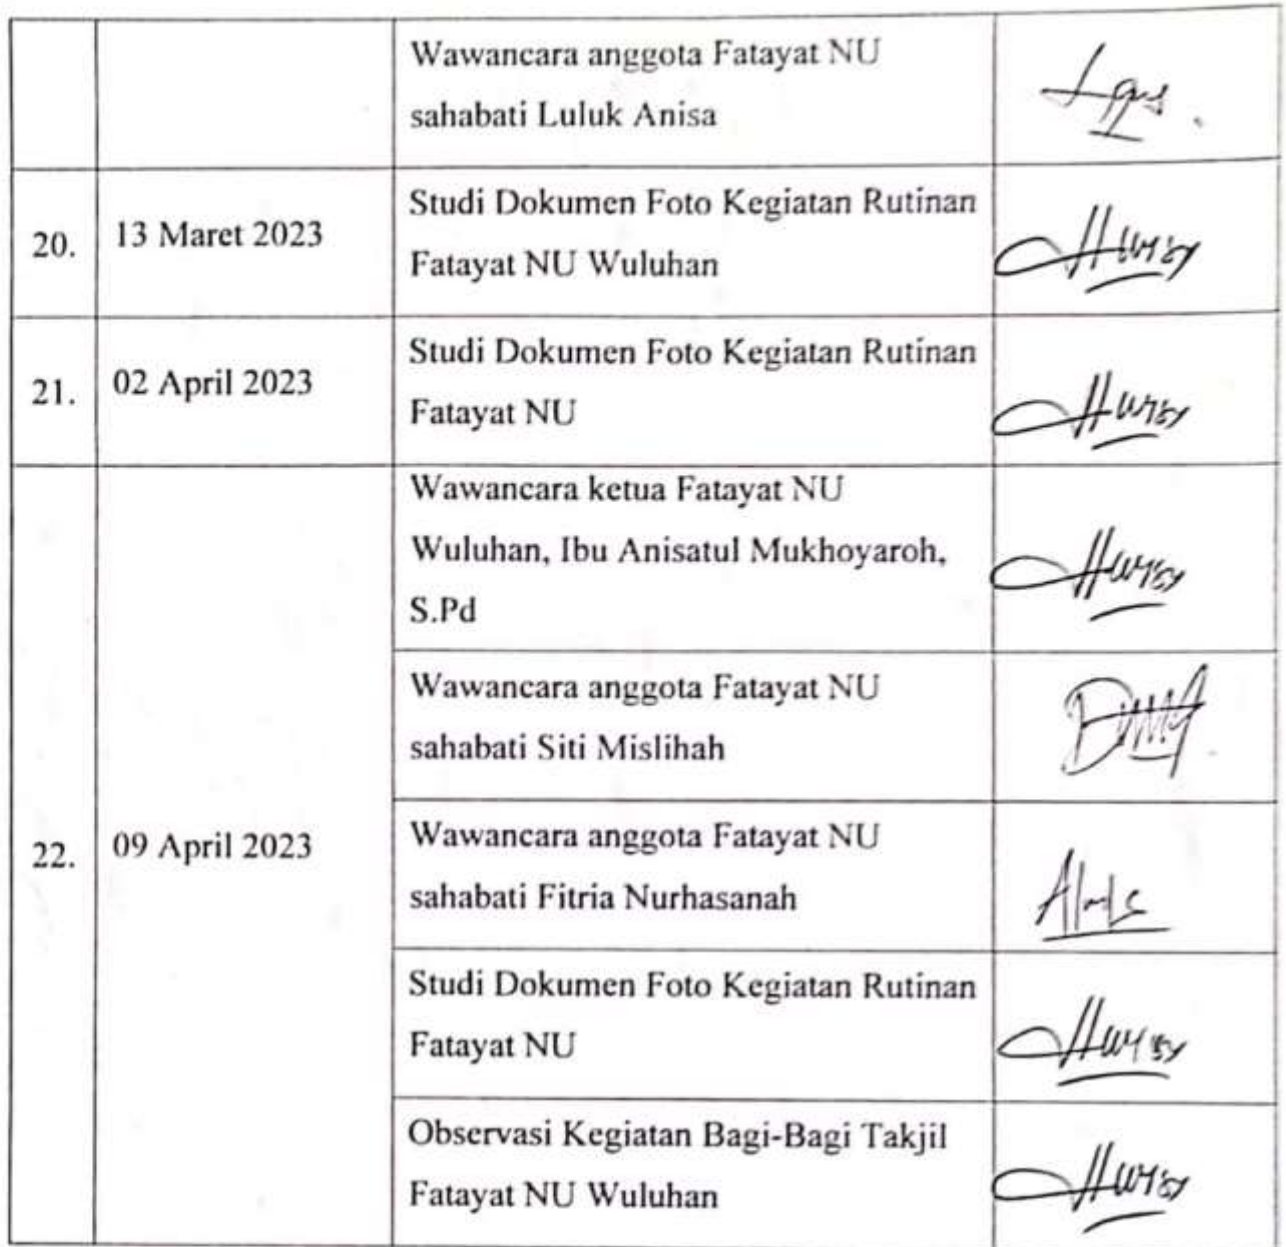 Wawancara anggota Fatayat NU
sahabati Luluk Anisa
20.
13 Maret 2023
Studi Dokumen Foto Kegiatan Rutinan
Fatayat NU Wuluhan
21.
02 April 2023
Studi Dokumen Foto Kegiatan Rutinan
Fatayat NU
22.
09 April 2023
Wawancara ketua Fatayat NU
Wuluhan, Ibu Anisatul Mukhoyaroh,
S.Pd
Wawancara anggota Fatayat NU
sahabati Siti Mislihah
Wawancara anggota Fatayat NU
sahabati Fitria Nurhasanah
Studi Dokumen Foto Kegiatan Rutinan
Fatayat NU
Observasi Kegiatan Bagi-Bagi Takjil
Fatayat NU Wuluhan